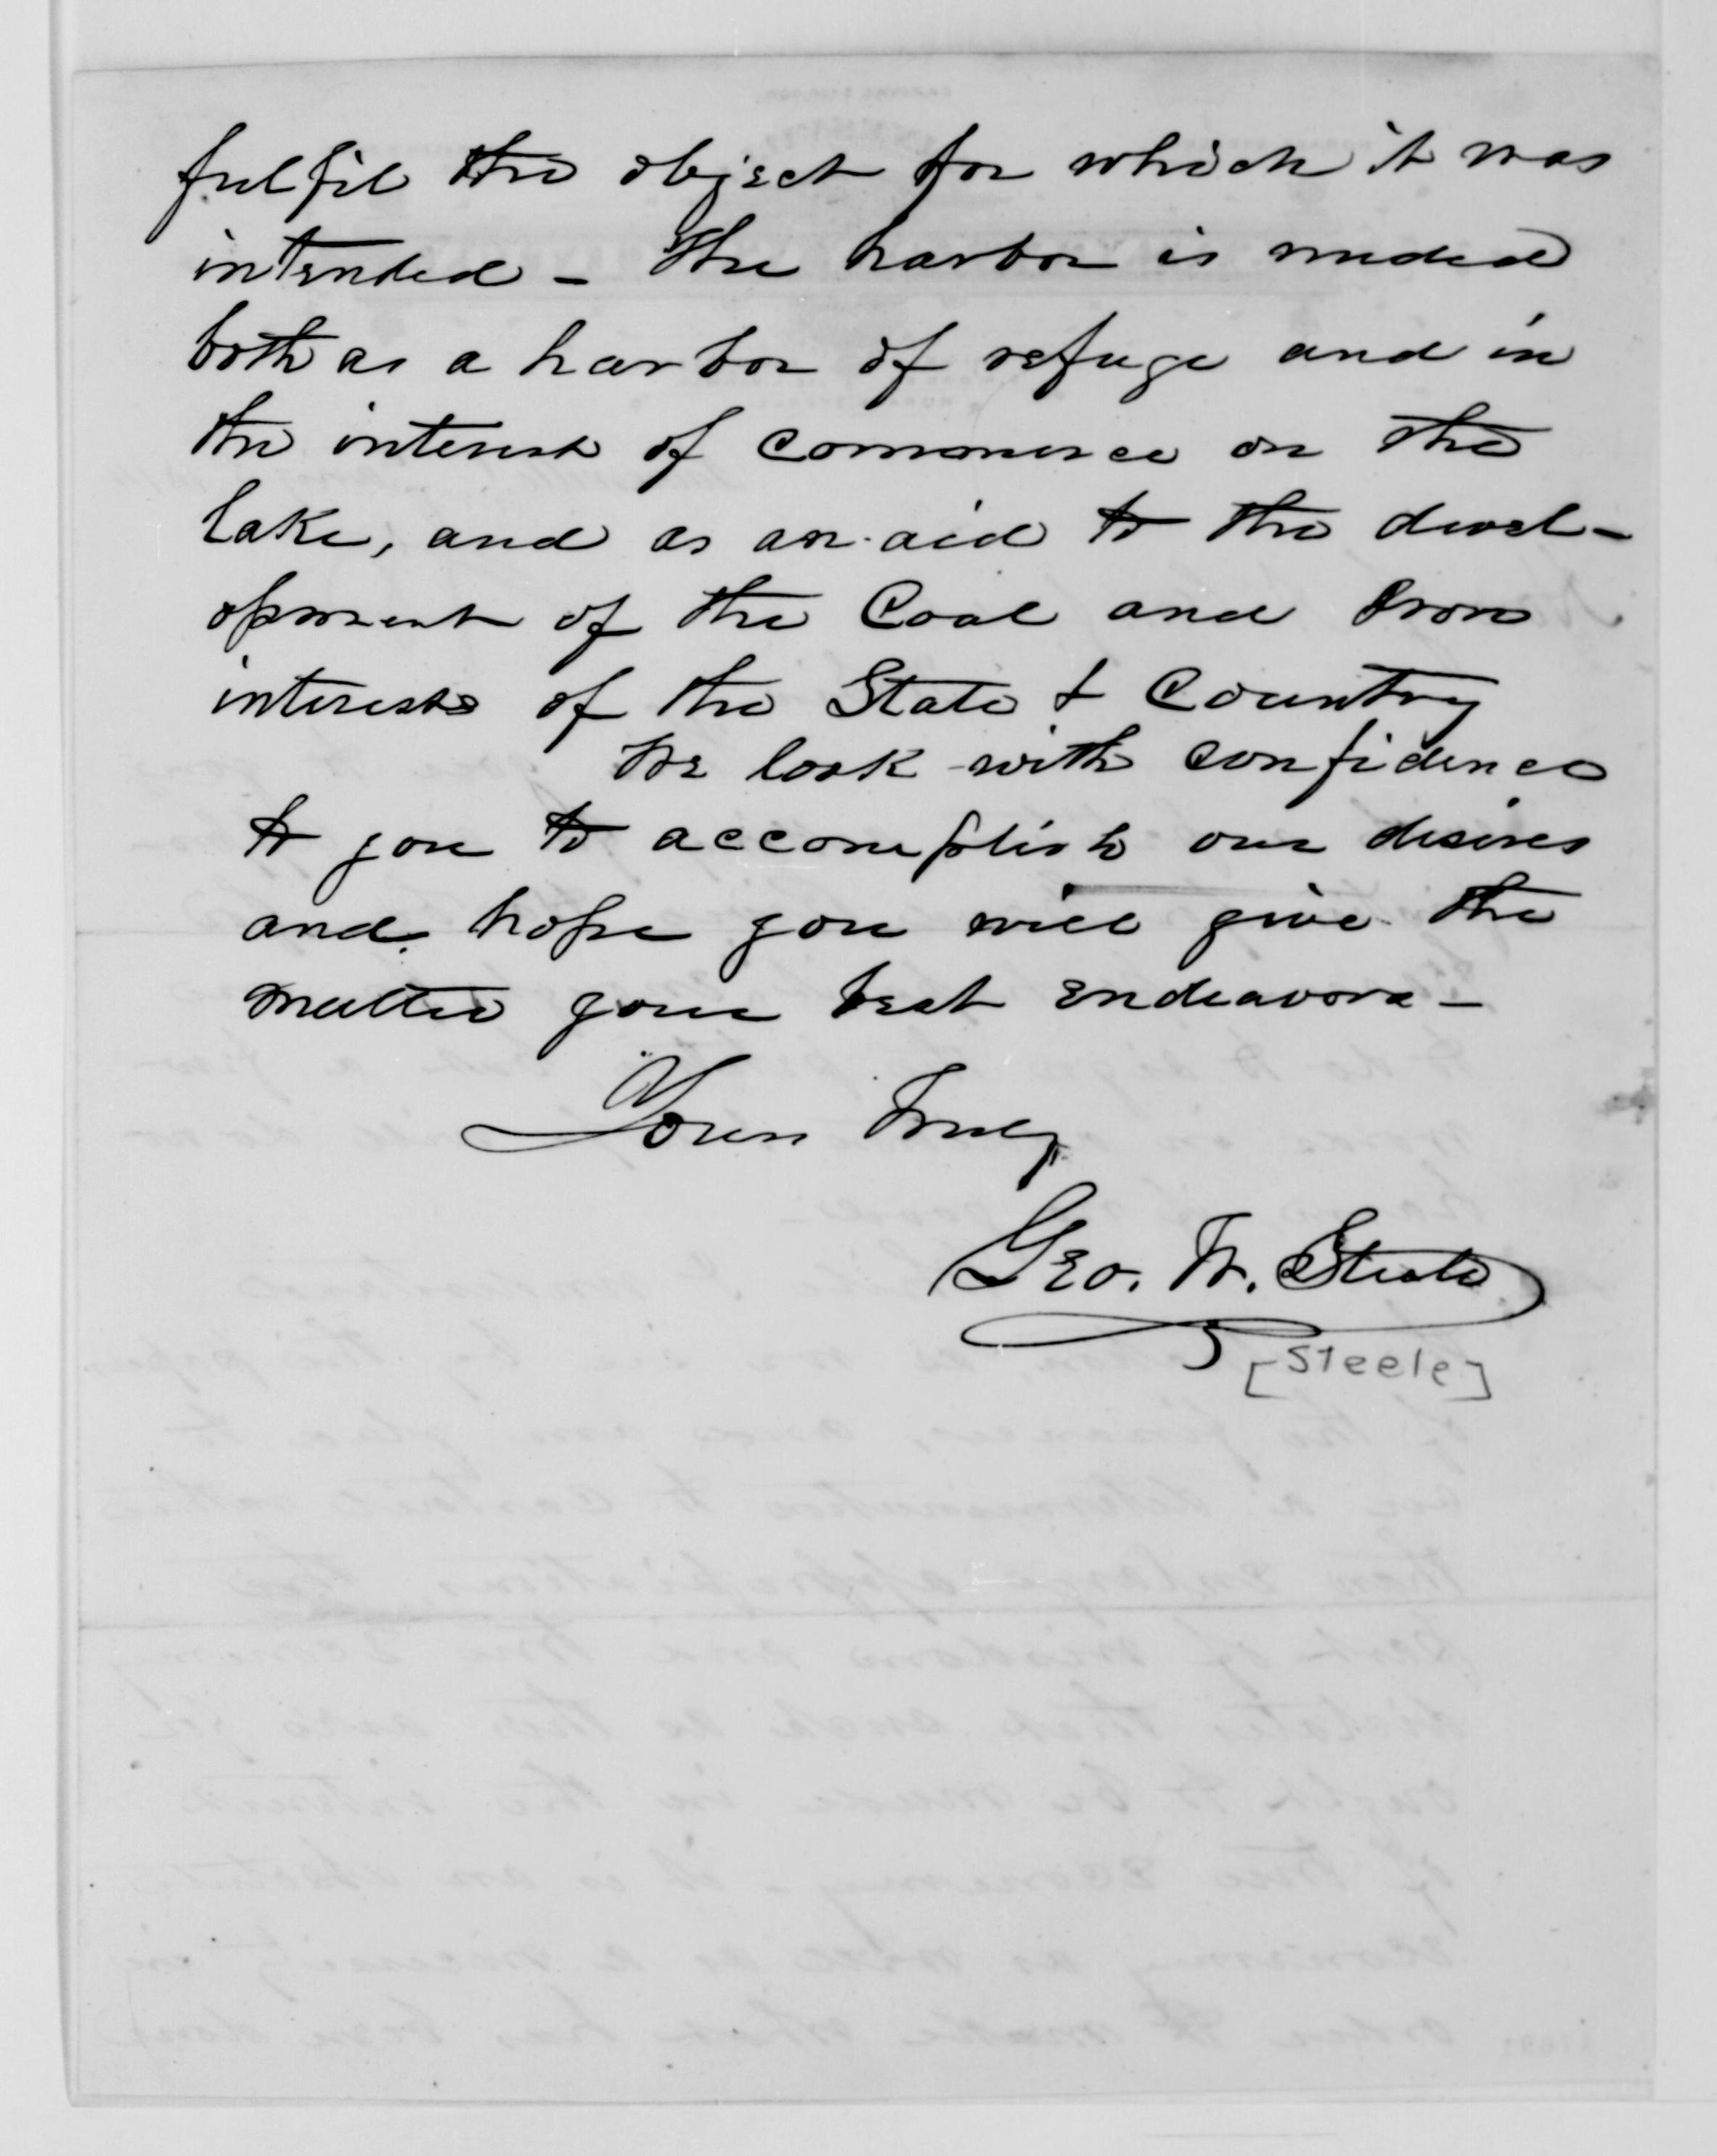 fulfil the object for which it was
intended - The harbor is needed
both as a harbor of refuge and in
the interest of commerce on the
lake, and as an aid to the devel-
opment of the Coal and Iron
interests of the State & Country
We look with confidence
to you to accomplish our desires
and hope you will give the
matter your best endeavors -
Yours Truly
Geo. W. Steele
[Steele]